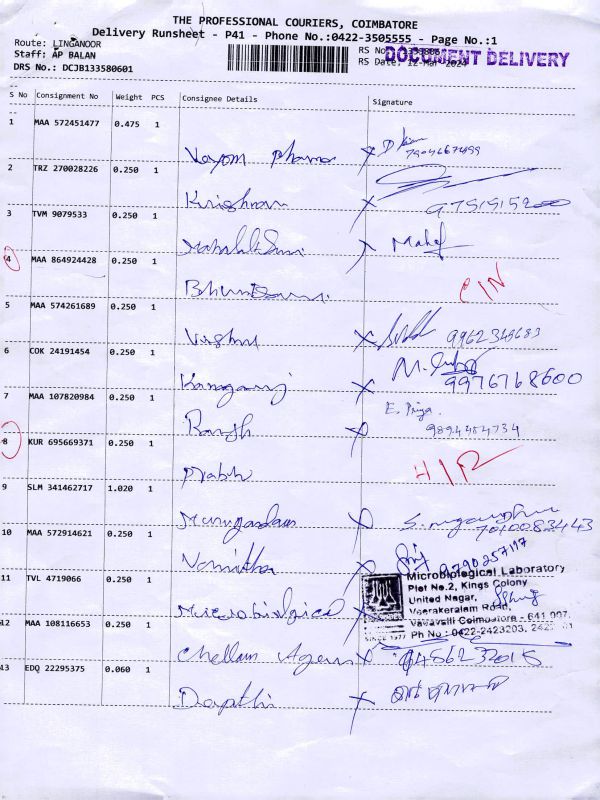 THE PROFESSIONAL COURIERS, COIMBATORE
Delivery Runsheet - P41 - Phone No.:0422-3505555 - Page No.:1
Route: LINGANOOR
Staff: AP BALAN
DRS No.: DCJB133580601
RS No
RS Date: 12-Mar-2024
DOCUMENT DELIVERY
S No Consignment No Weight PCS Consignee Details Signature
1 MAA 572451477 0.475 1
Vayom pharma
2 TRZ 270028226 0.250 1
Krishnan 9751515200
3 TVM 9079533 0.250 1
Mahalakshmi Mahef
4 MAA 864924428 0.250 1
CIN
5 MAA 574261689 0.250 1
Vishnu 9962345683
6 COK 24191454 0.250 1
Kanganj 9976768600
7 MAA 107820984 0.250 1
E. Priya.
Ranjh 9894454734
8 KUR 695669371 0.250 1
Prabh H/R
9 SLM 341462717 1.020 1
Murugandam 7010083443
10 MAA 572914621 0.250 1
Namitha 9790257197
11 TVL 4719066 0.250 1
Microbiological
Microbiological Laboratory
Plot No.2, Kings Colony
United Nagar,
Veerakeralam Road,
Vadavalli Coimbatore - 641 007.
Ph No : 0422-2423203,
SINCE 1977
12 MAA 108116653 0.250 1
Chellam Agens 9486232018
13 EDQ 22295375 0.060 1
Deepthi